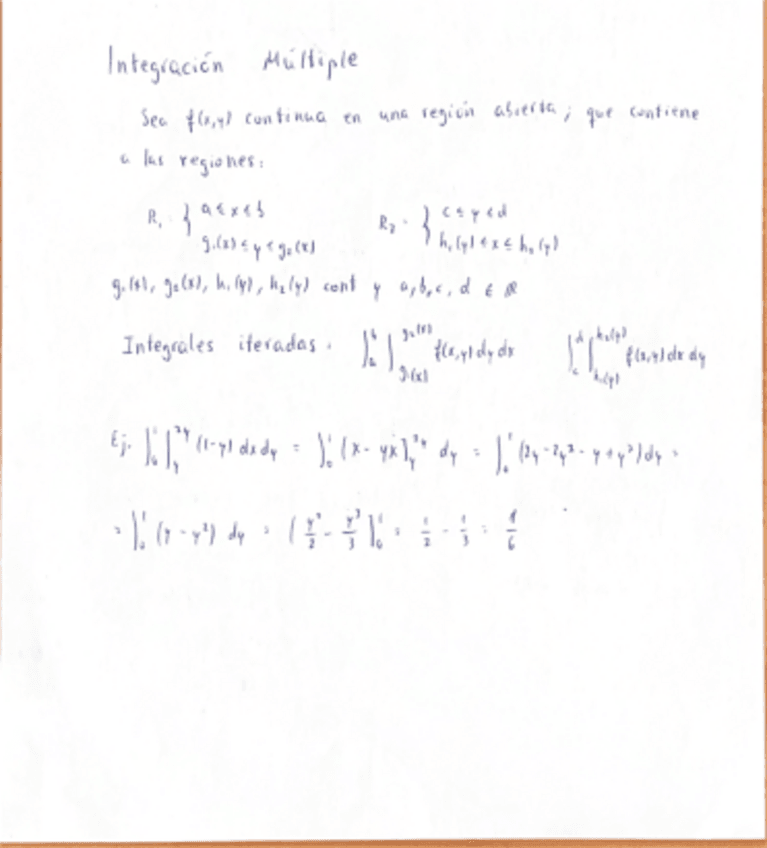 Integración Múltiple
Sea f(x,y) continua en una región abierta; que contiene
a las regiones:
R₁ = { a ≤ x ≤ b
g₁(x) ≤ y ≤ g₂(x)
R₂ = { c ≤ y ≤ d
h₁(y) ≤ x ≤ h₂(y)
g₁(x), g₂(x), h₁(y), h₂(y) cont y a,b,c,d ∈ ℝ
Integrales iteradas. ∫ₐᵇ ∫_{g₁(x)}^{g₂(x)} f(x,y) dy dx ∫_c^d ∫_{h₁(y)}^{h₂(y)} f(x,y) dx dy
Ej. ∫₀¹ ∫_y^{2y} (1-y) dx dy = ∫₀¹ (x - yx]_y^{2y} dy = ∫₀¹ (2y - 2y² - y + y²) dy =
= ∫₀¹ (y - y²) dy = ( y²/2 - y³/3 ]₀¹ = 1/2 - 1/3 = 1/6